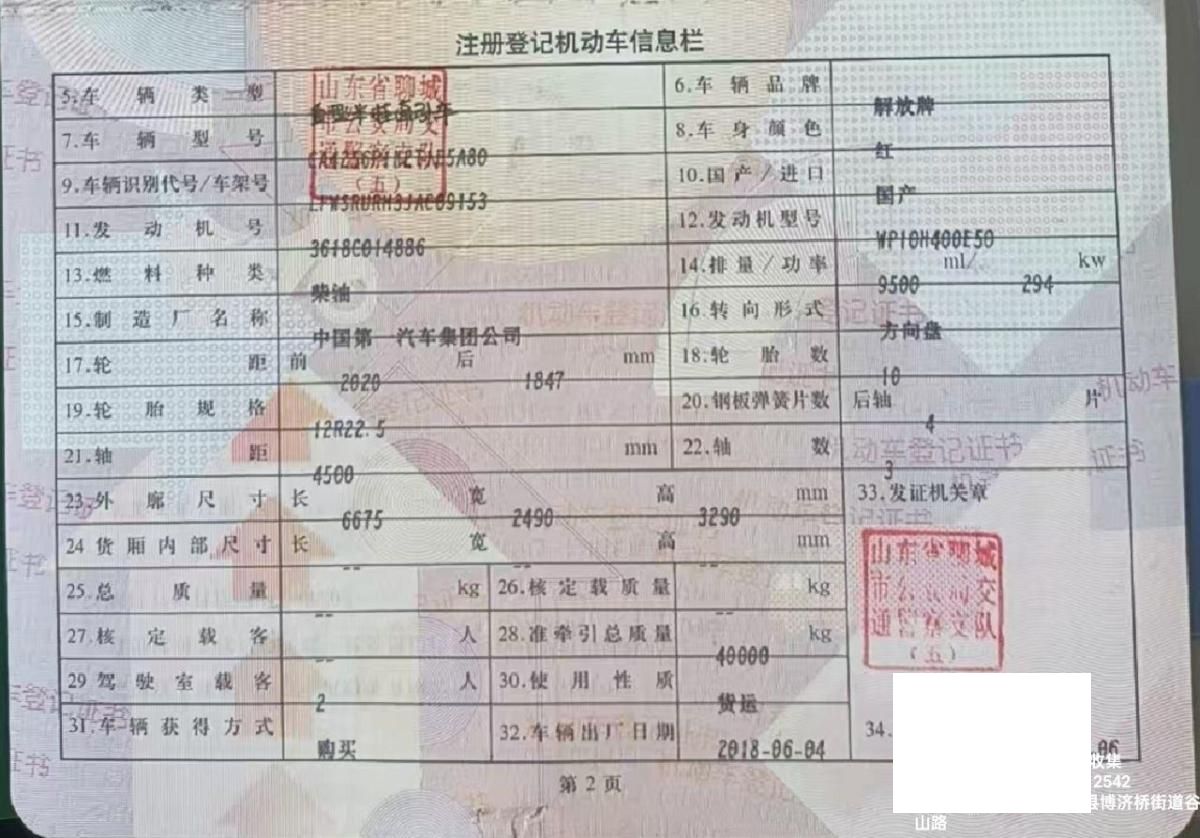 注册登记机动车信息栏
5.车辆类型 重型半挂牵引车 6.车辆品牌 解放牌
7.车辆型号 8.车身颜色 红
9.车辆识别代号/车架号 10.国产/进口 国产
11.发动机号 3618C014886 12.发动机型号 WP10H400E50
13.燃料种类 柴油 14.排量/功率 9500 ml/ 294 kw
15.制造厂名称 中国第一汽车集团公司 16.转向形式 方向盘
17.轮距 前 2020 后 1847 mm 18.轮胎数 10
19.轮胎规格 12R22.5 20.钢板弹簧片数 后轴 4 片
21.轴距 4500 mm 22.轴数 3
23.外廓尺寸 长 6675 宽 2490 高 3290 mm 33.发证机关章
24货厢内部尺寸 长 -- 宽 -- 高 -- mm
25.总质量 -- kg 26.核定载质量 -- kg
27.核定载客 -- 人 28.准牵引总质量 40000 kg
29驾驶室载客 2 人 30.使用性质 货运
31.车辆获得方式 购买 32.车辆出厂日期 2018-06-04 34. 06
山东省聊城
市公安局交
通警察支队
(五)
山东省聊城
市公安局交
通警察支队
(五)
第2页
收集
2542
县博济桥街道谷
山路